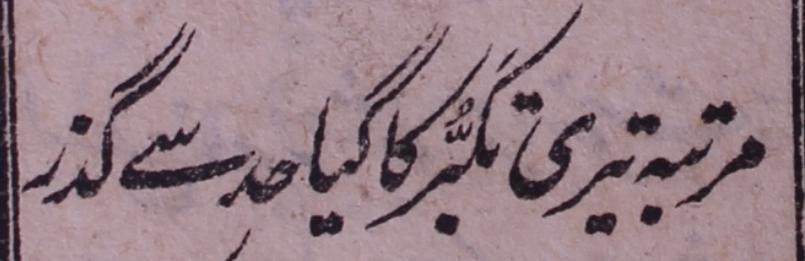 مرتبہ تیری تکبُّر کا گیا حد سے گذر